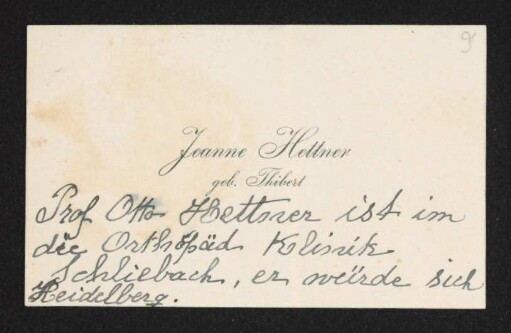 Jeanne Hettner
geb. Thibert
Prof Otto Hettner ist im
die Orthöpäd Klinik
Schliebach, er würde sich
Heidelberg.